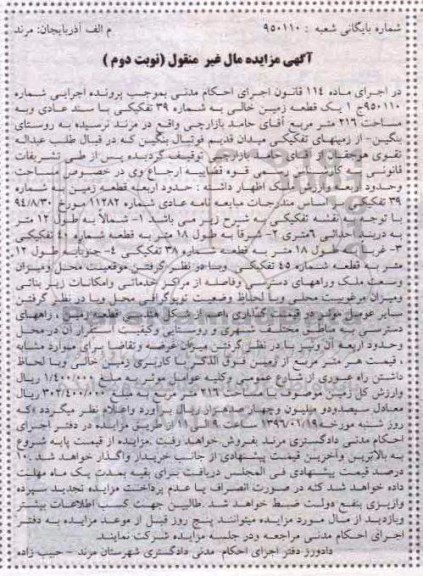 شماره بایگانی شعبه : ۹۵۰۱۱۰ م الف آذربایجان: مرند
آگهی مزایده مال غیر منقول (نوبت دوم)
در اجرای ماده ۱۱۴ قانون اجرای احکام مدنی بموجب پرونده اجرایی شماره
۹۵۰۱۱۰ج۱ یک قطعه زمین خالی به شماره ۳۹ تفکیکی با سند عادی وبه
مساحت ۲۱۶ متر مربع آقای حامد بازارچی واقع در مرند نرسیده به روستای
بنگین- از زمینهای تفکیکی میدان قدیم فوتبال بنگین که در قبال طلب عبداله
تقوی هوجقان از آقای حامد بازارچی توقیف گردیده پس از طی تشریفات
قانونی به کارشناس رسمی قوه قضاییه ارجاع وی در خصوص مساحت
وحدود اربعه وارزش ملک اظهار داشته : حدود اربعه قطعه زمین به شماره
۳۹ تفکیکی بر اساس مندرجات مبایعه نامه عادی شماره ۱۱۲۸۲ مورخ ۹۴/۸/۳۰
با توجه به نقشه تفکیکی به شرح زیر می باشد ۱- شمالا به طول ۱۲ متر
به دربند احداثی ۶متری ۲- شرقا به طول ۱۸ متر به قطعه شماره ۴۰ تفکیکی
۳- غربا به طول ۱۸ متر به قطعه شماره ۳۸ تفکیکی ۴- جنوبا به طول ۱۲
متر به قطعه شماره ۴۵ تفکیکی وبا در نظر گرفتن موقعیت محل ومیزان
وسعت ملک وراههای دسترسی وفاصله از مراکز خدماتی وامکانات زیر بنائی
ومیزان مرغوبیت محلی وبا لحاظ وضعیت توپوگرافی محل وبا در نظر گرفتن
سایر عوامل موثر در قیمت گذاری اعم از شکل هندسی قطعه زمین ، راههای
دسترسی به مناطق مختلف شهری و روستایی وکیفیت استقرار آن در محل
وحدود اربعه آن ونیز با در نظر گرفتن میزان عرضه وتقاضا برای موارد مشابه
، قیمت هر متر مربع از زمین فوق الذکر با کاربری زمین خالی وبا لحاظ
داشتن راه عبوری از شارع عمومی وکلیه عوامل موثر به مبلغ ۱/۴۰۰/۰۰۰ ریال
وارزش کل زمین موصوف با مساحت ۲۱۶ متر مربع به مبلغ ۳۰۲/۴۰۰/۰۰۰ ریال
معادل سیصدودو میلیون وچهارصدهزار ریال برآورد واعلام نظر میگردد »که
روز شنبه مورخه۱۳۹۶/۰۱/۱۹ ساعت ۹ الی ۱۱ از طریق مزایده در دفتر اجرای
احکام مدنی دادگستری مرند بفروش خواهد رفت .مزایده از قیمت پایه شروع
به بالاترین وآخرین قیمت پیشنهادی از جانب خریدار واگذار خواهد شد .۱۰
درصد قیمت پیشنهادی فی المجلس دریافت برای بقیه بمدت یک ماه مهلت
داده خواهد شد که در صورت انصراف یا عدم پرداخت مزایده تجدید سپرده
واریزی بنفع دولت ضبط خواهد شد .طالبین جهت کسب اطلاعات بیشتر
وبازدید از مال مورد مزایده میتوانند پنج روز قبل از موعد مزایده به دفتر
اجرای احکام مدنی مراجعه ودر جلسه مزایده شرکت نمایند.
دادورز دفتر اجرای احکام مدنی دادگستری شهرستان مرند – حبیب زاده